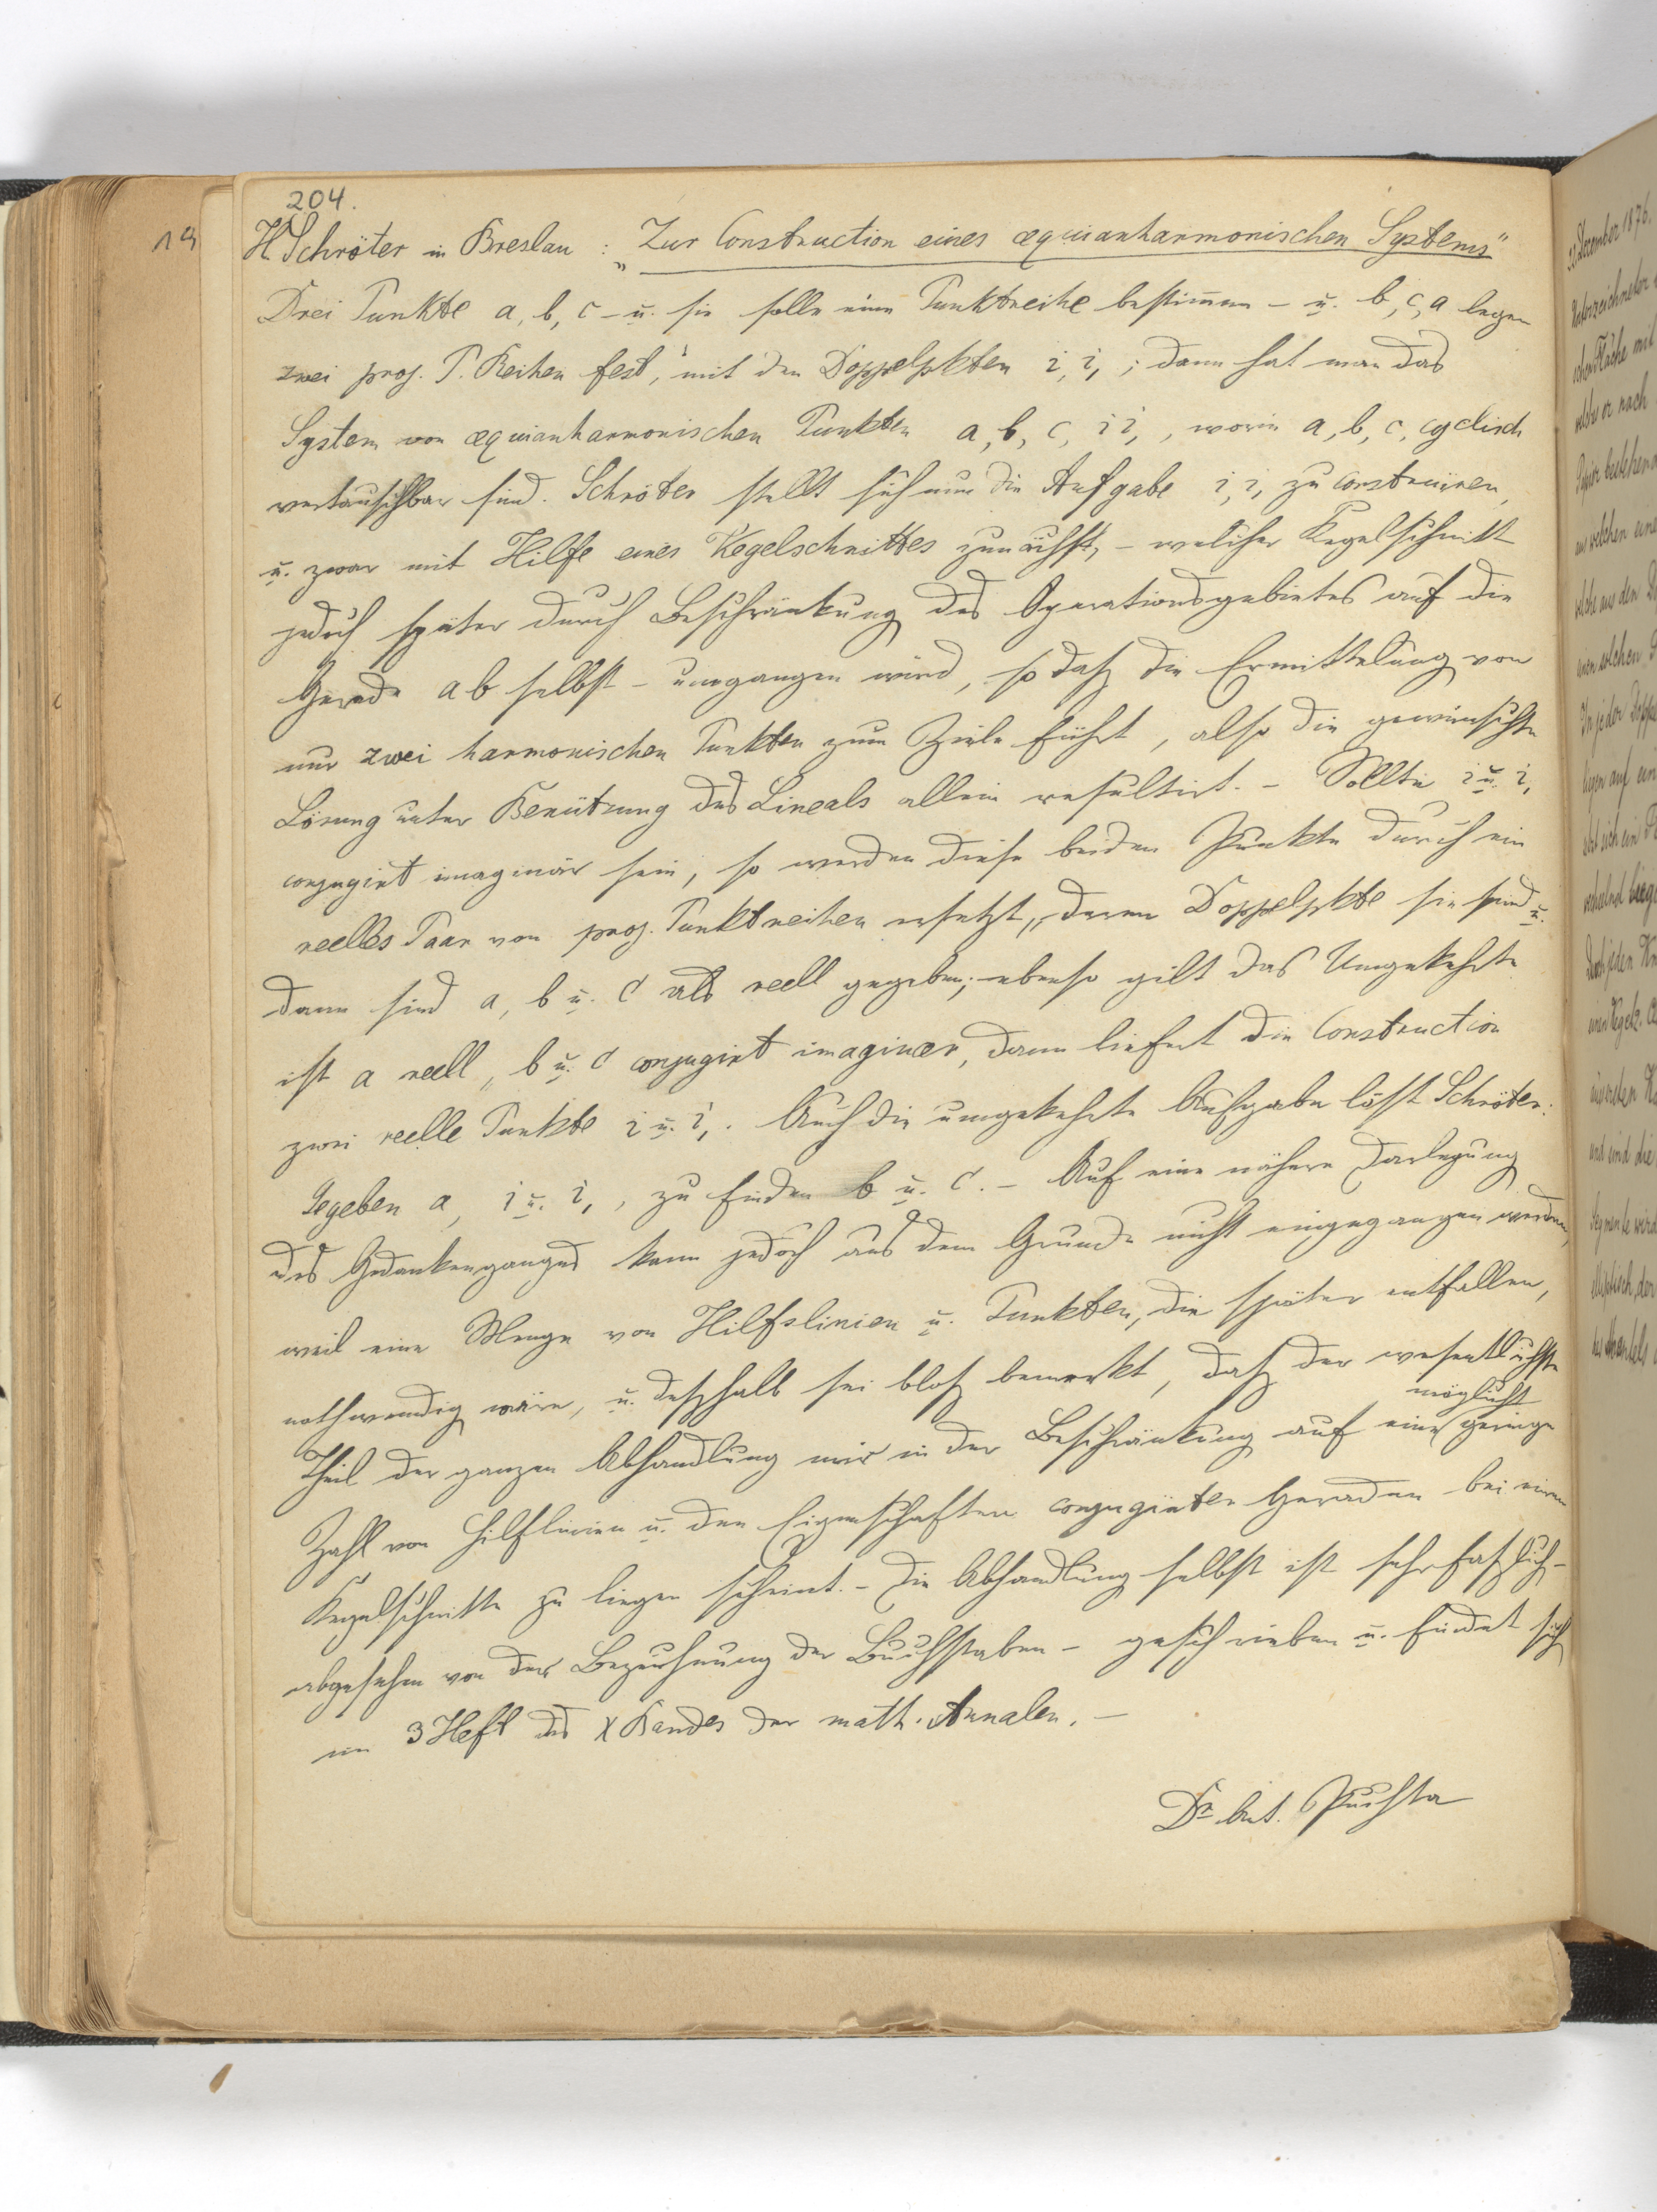 204.
19
H Schröter in Breslau : „Zur Construction eines æquianharmonischen Systems"
Drei Punkte a, b, c – u. sie sollen eine Punktreihe bestimmen – u. b, c, a legen
zwei proj. P. Reihen fest, mit den Doppelpkten i, i, ; dann hat man das
System von æquianharmonischen Punkten a, b, c, i i, , worin a, b, c, cyclisch
vertauschbar sind. Schröter stellt sich nun die Aufgabe i, i, zu construiren,
u. zwar mit Hilfe eines Kegelschnittes zunächst, – welcher Kegelschnitt
jedoch später durch Beschränkung des Operationsgebietes auf die
Gerade ab selbst – umgangen wird, so daß die Ermittelung von
nur zwei harmonischen Punkten zum Ziele führt, also die gewünschte
Lösung unter Benützung des Lineals allein resultirt. – Sollte i u. i,
conjugirt imaginär sein, so werden diese beiden Punkte durch ein
reelles Paar von proj. Punktreihen ersetzt, deren Doppelpkte sie sind u.
dann sind a, b u. c als reell gegeben; ebenso gilt das Umgekehrte
ist a reell, b u. c conjugirt imaginær, dann liefert die Construction
zwei reelle Punkte i u. i, . Auch die umgekehrte Aufgabe löst Schröter:
Gegeben a, i u. i, , zu finden b u. c. – Auf eine nähere Darlegung
des Gedankenganges kann jedoch aus dem Grunde nicht eingegangen werden,
weil eine Menge von Hilfslinien u. Punkten, die später entfallen,
nothwendig wäre, u. deßhalb sei bloß bemerkt, daß der wesentlichste
Theil der ganzen Abhandlung mir in der Beschränkung auf eine möglichst geringe
Zahl von Hilflinien u. den Eigenschaften conjugirter Geraden bei einem
Kegelschnitte zu liegen scheint. – Die Abhandlung selbst ist sehr faßlich –
abgesehen von der Bezeichnung der Buchstaben – geschrieben u. findet sich
im 3 Heft des X Bandes der math. Annalen. –
Dr Ant. Puchta